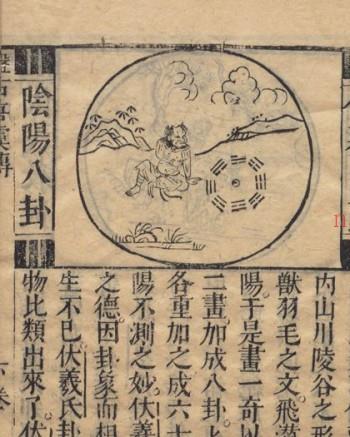 陰陽八卦
内山川陵谷之形
獸羽毛之文飛
陽于是畫一奇以
二畫加成八卦
各重加之成六十
陽不測之妙伏羲
之德因卦象而相
生不已伏羲氏卦
物比類出來了伏